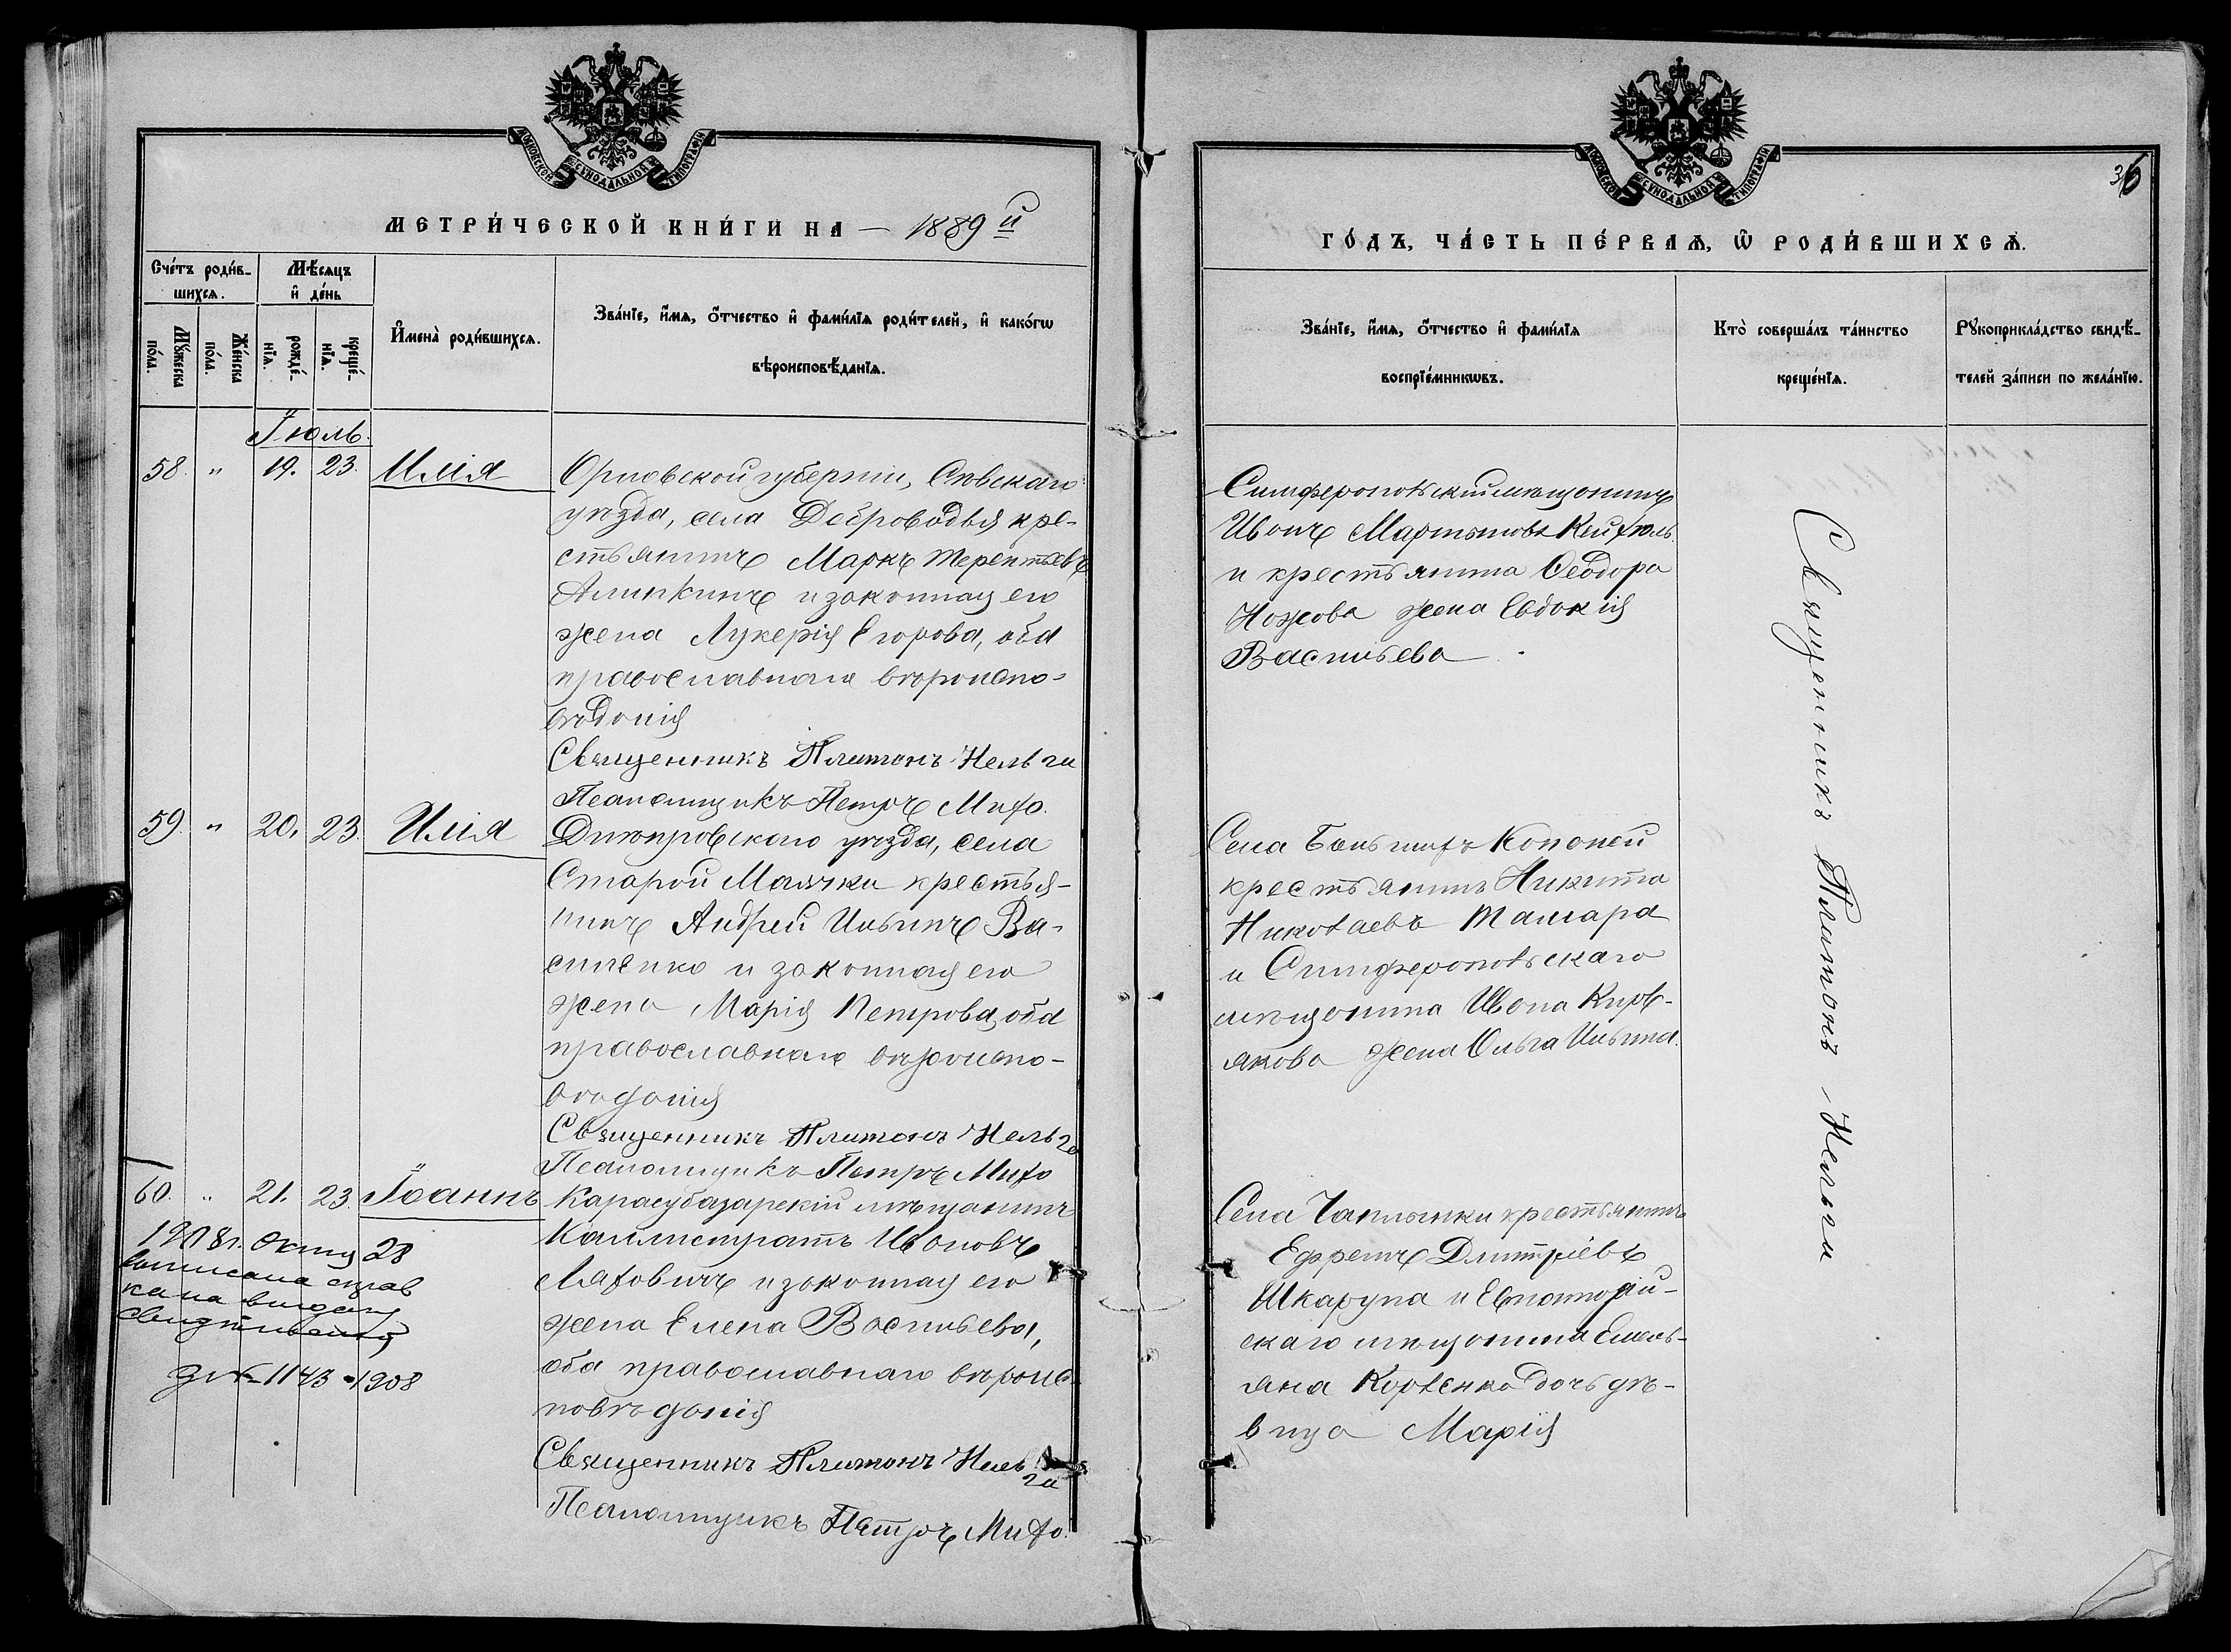 МОСКОВСКОЙ СѴНОДАЛЬНОЙ ТИПОГРАФІИ
МЕТРИ́ЧЕСКОЙ КНИ́ГИ НА — 1889й
Сче́тъ роди́в-
шихсѧ.
Мѣ́сѧцъ
и҆ де́нь
Мꙋ́жеска по́ла.
Же́нска по́ла.
рожде́-
нїѧ.
креще́-
нїѧ.
И҆мена̀ роди́вшихсѧ.
Зва́нїе, и҆́мѧ, ѻ҆́тчество и҆ фами́лїѧ роди́телей, и҆ како́гѡ
вѣроисповѣ́данїѧ.
Іюль.
58. " 19. 23. Илія
Орловской губерніи, Сѣвскаго
уѣзда, села Доброводья кре-
стьянинъ Маркъ Терентьевъ
Алипкинъ и законная его
жена Лукерія Егорова, оба
православнаго вѣроиспо-
вѣданія
Священникъ Платонъ Нельги
Псаломщикъ Петръ Михо.
59. " 20. 23. Илія
Днѣпровскаго уѣзда, села
Старой Маячки крестья-
нинъ Андрей Ильинъ Ва-
силенко и законная его
жена Марія Петрова, оба
православнаго вѣроиспо-
вѣданія
Священникъ Платонъ Нельги
Псаломщикъ Петръ Михо
60. " 21. 23. Іоаннъ
Карасубазарскій мѣщанинъ
Каллистратъ Ивановъ
Ляховичъ и законная его
жена Елена Васильева,
оба православнаго вѣроис-
повѣданія
Священникъ Платонъ Нельги
Псаломщикъ Петръ Михо.
1908 г. Окт. 28
выписана справ
ка на выдачу
свидѣтельства
№ 1143 - 1908
МОСКОВСКОЙ СѴНОДАЛЬНОЙ ТИПОГРАФІИ
36
ГО́ДЪ, ЧА́СТЬ ПЕ́РВАѦ, Ѽ РОДИ́ВШИХСѦ.
Зва́нїе, и҆́мѧ, ѻ҆́тчество и҆ фами́лїѧ
воспрїе́мникѡвъ.
Кто̀ соверша́лъ та́инство
креще́нїѧ.
Рꙋкоприкла́дство свидѣ́-
телей за́писи по жела́нїю.
Симферопольскій мѣщанинъ
Иванъ Мартыновъ Кейхель
и крестьянина Ѳеодора
Ножова жена Евдокія
Васильева
Села Большихъ Копоней
крестьянинъ Никита
Николаевъ Тамара
и Симферопольскаго
мѣщанина Ивана Кирь-
якова жена Ольга Ильина.
Села Чаплынки крестьянинъ
Ефремъ Дмитріевъ
Шкарупа и Евпаторій-
скаго мѣщанина Емель-
яна Корвенко дочь дѣ-
вица Марія
Священникъ Платонъ Нельги